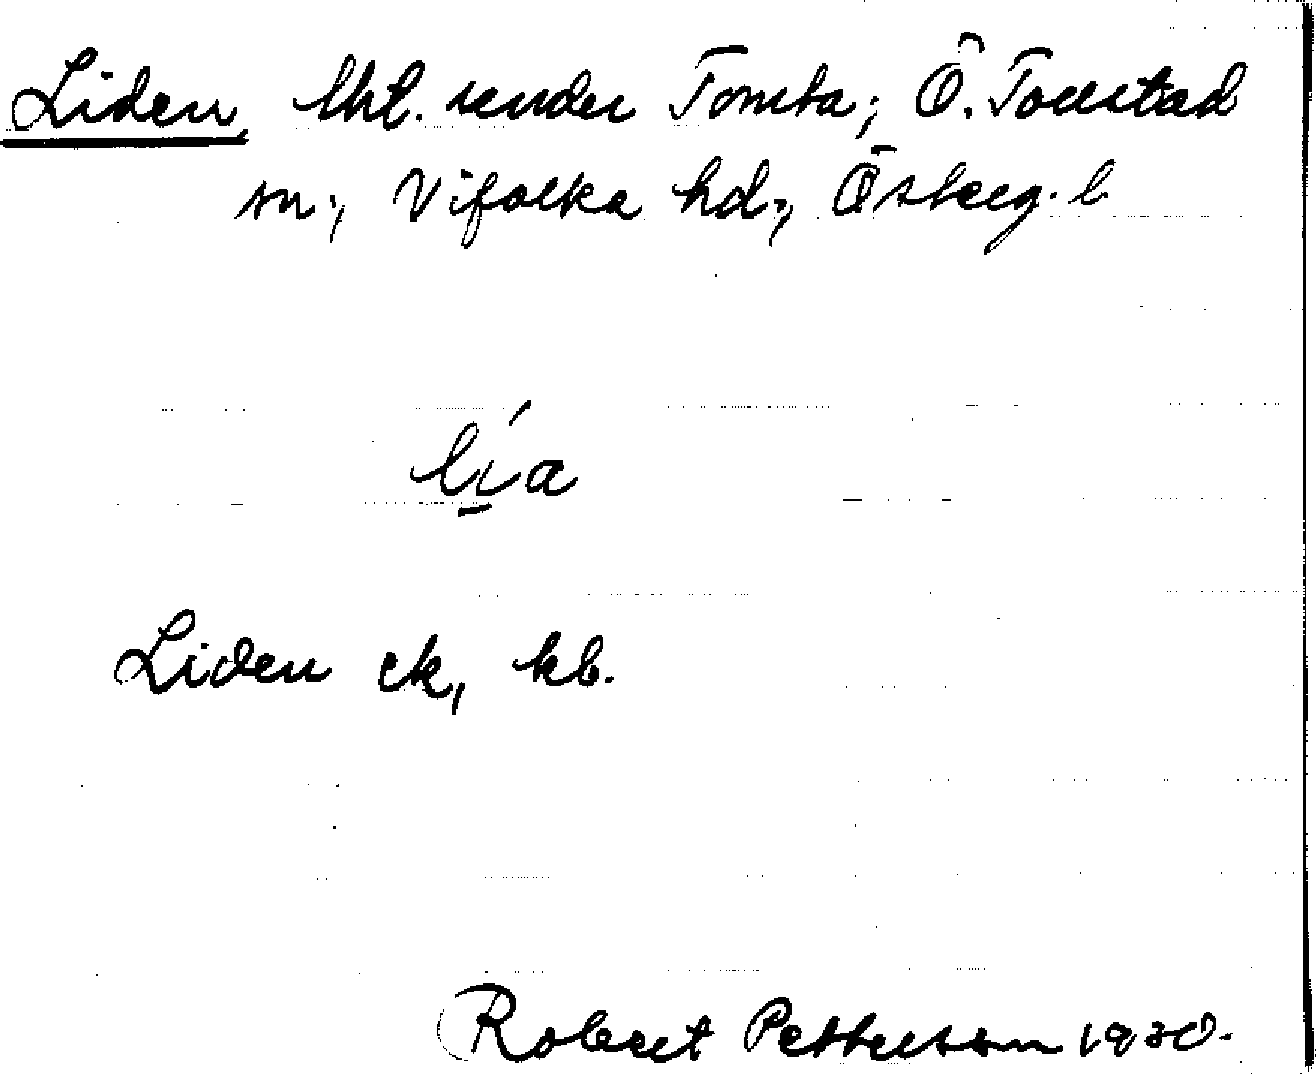 Liden, lht. under Tomta; Ö. Tollstad
sn; Vifolka hd; Österg. l.
lía
Liden ek, kb.
Robert Pettersson 1930.